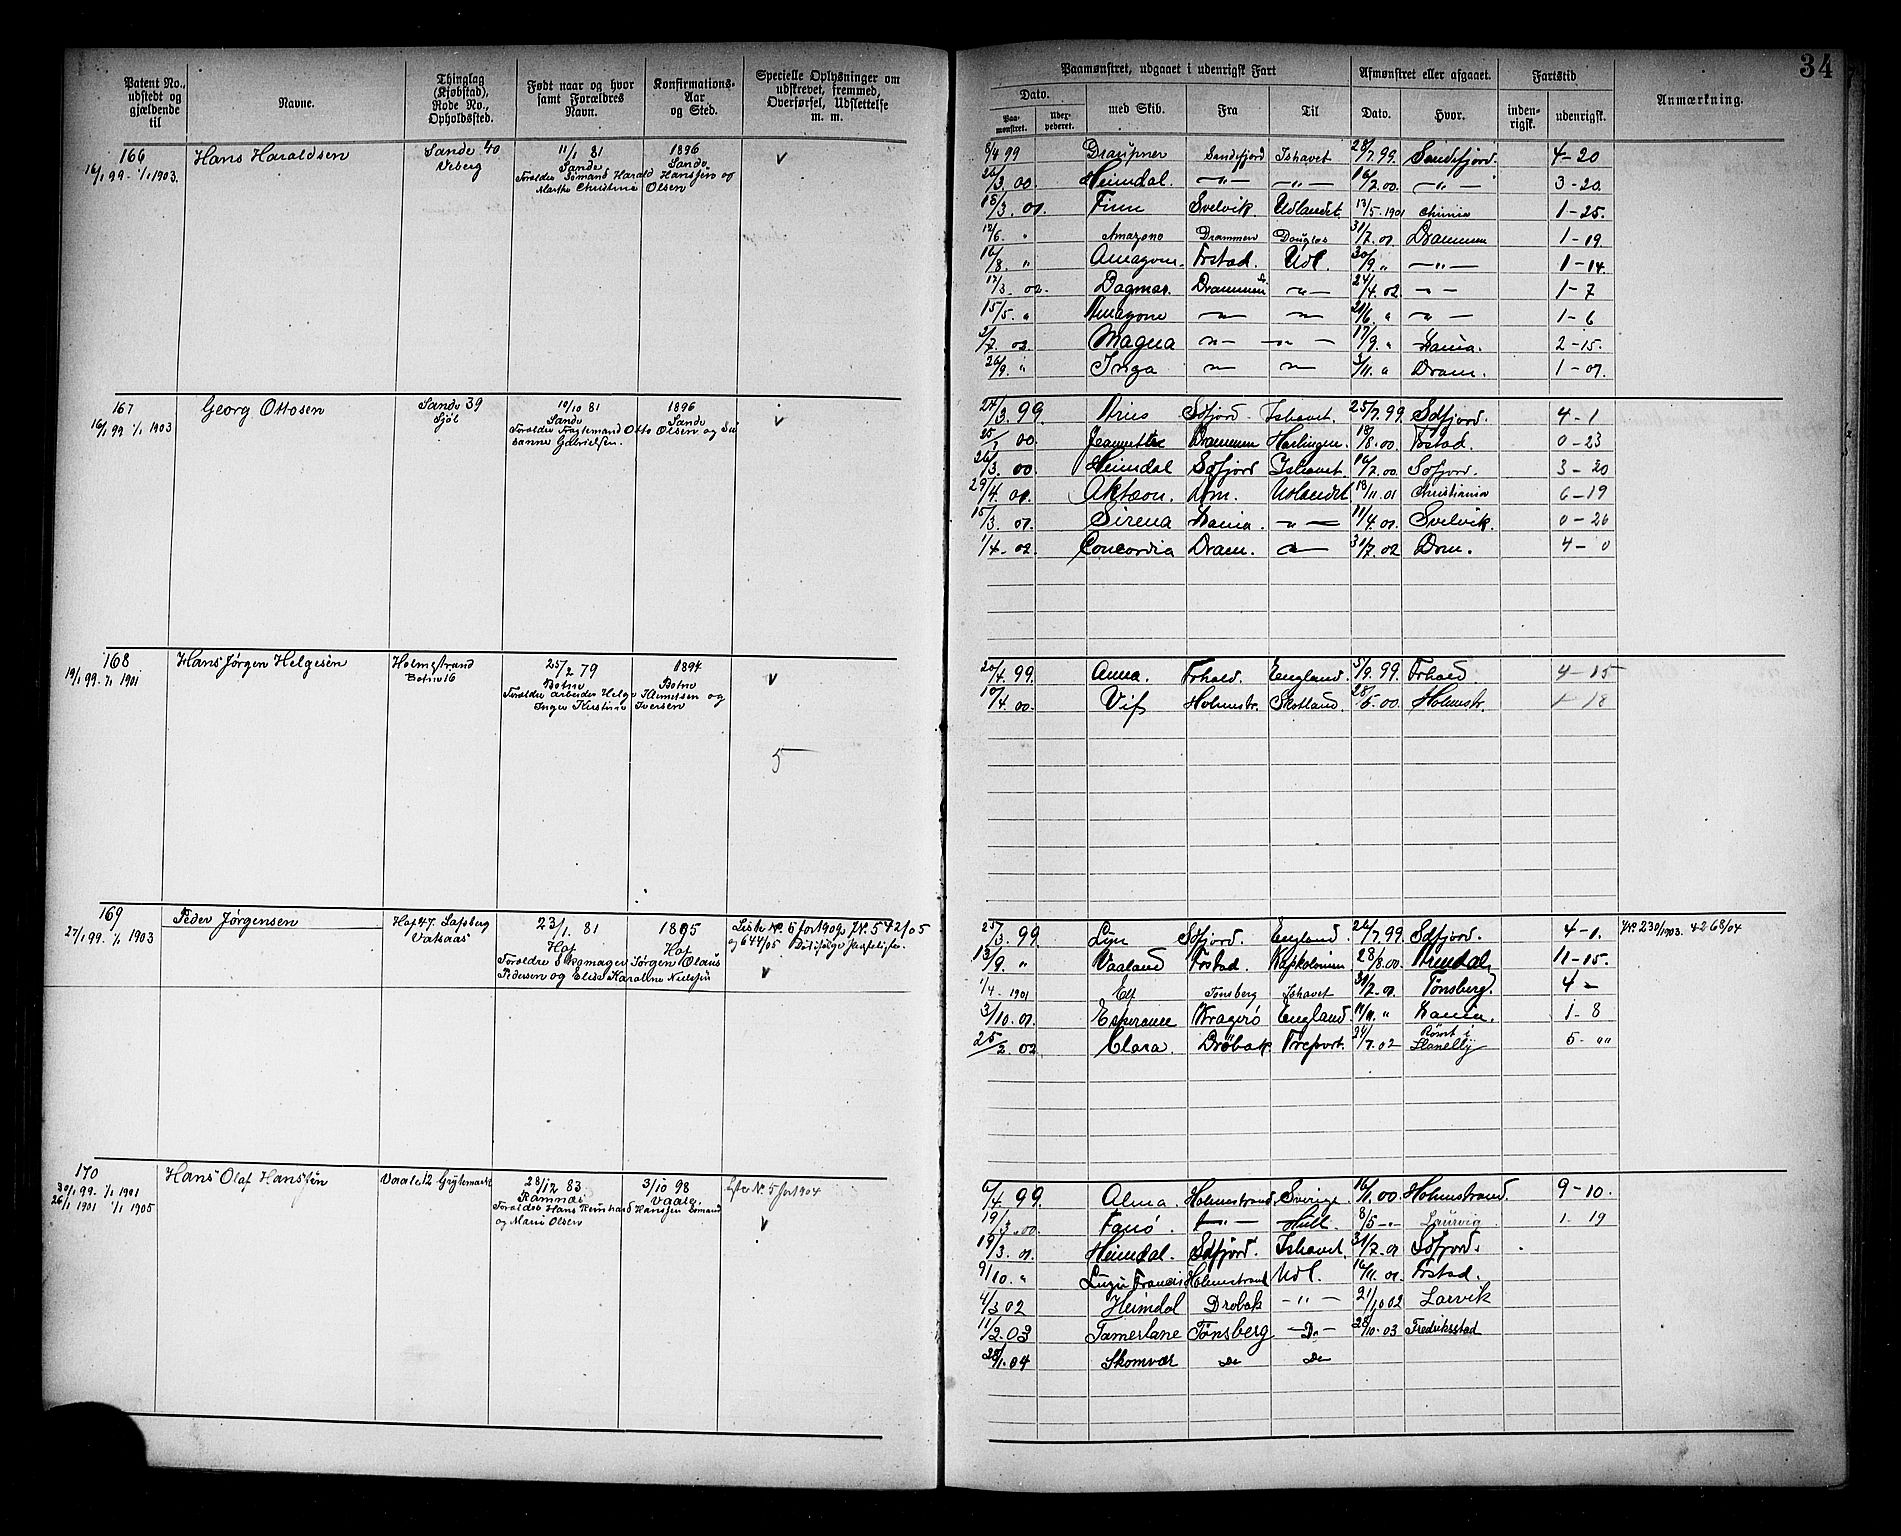 34
Patent No., udstedt og gjældende til
Navne.
Thinglag (Kjøbstad), Rode No., Opholdssted.
Født naar og hvor samt Forældres Navn.
Konfirmations-Aar og Sted.
Specielle Oplysninger om udskrevet, fremmed, Overførsel, Udslettelse m. m.
Paamønstret, udgaaet i udenrigsk Fart
Afmønstret eller afgaaet.
Fartstid
Anmærkning.
Dato.
Paamønstret.
med Skib.
Fra
Til
Dato.
Hvor.
indenrigsk.
udenrigsk.
166
16/1 99. 1/1 1903.
Hans Haraldsen
Sande 40
Veberg
11/1 81
Sande
Forældre Sømand Harald Hanssen og
Marthe Christine Olsen
1896
Sande
v
8/4 99 Draupner Sandefjord Ishavet 28/7.99. Sandefjord 4-20
26/3.00. Heimdal. —"— —"— 16/7.00. —"— 3-20.
15/3.01. Finn Svelvik Udlandet. 13/5.1901 Chnia 1-25.
12/6. " Amazone Drammen Douglas 31/7.01. Drammen 1-19
16/8. " Amagone. Frstad. Udl. 30/9. " —"— 1-14.
17/3.02. Dagmar. Drammen —"— 24/4.02. —"— 1-7
15/5. " Amagone —"— —"— 21/6. " —"— 1-6
2/7.02 Magna —"— —"— 17/9. " Kania. 2-15.
26/9. " Inga —"— —"— 3/11. " Dram. 1-07.
167
16/1 99 1/1 1903
Georg Ottosen
Sande 39
Sjøl
10/10 81
Sande
Forældre Fragtemand Otto Olsen og Su
sanne Gabrielsen.
1896
Sande
v
27/3.99. Aries Sdfjord. Ishavet. 25/7.99. Sdfjord. 4-1
25/7.00. Jeannette Drammen Harlingen. 18/8.00. Frstad. 0-23
26/3.00. Heimdal Sdfjord Ishavet 16/7.00. Sdfjord. 3-20
29/4.01. Aktæon. Drm. Udlandet 18/11.01 Christiania 6-19
15/3.01. Sirena Kania. —"— 11/4.01. Svelvik. 0-26
1/4.02. Concordia Dram. —"— 31/7.02 Drm. 4-0
168
19/1 99. 7/1 1901
Hans Jørgen Helgesen
Holmestrand
Botne 16
25/2 79
Botne
Forældre Arbeider Helge Klemetsen og
Inger Kirstine Iversen
1894
Botne
v
5
20/4.99. Anna. Frhald. England. 5/9.99. Frhald 4-15
10/4.00. Vif Holmstr. Skotland. 28/5.00. Holmstr. 1-18
169
27/1 99. 1/1 1903
Peder Jørgensen
Hof 47. Lafsberg
Vatsaas
23/1. 81
Hof
Forældre Skomager Jørgen Olaus
Pedersen og Elise Karoline Nielsen
1895
Hof
Liste No. 5 for 1909. JNo. 572/05
og 644/05
v
25/3.99. Lyn Sdfjord. England. 26/7.99. Sdfjord. 4-1. JNo. 230/1903. 4268/04
13/9. " Vaaland Frstad. Kapkolonien 28/8.00. Arendal. 11-15.
1/4. 1901 Elf Tønsberg Ishavet 31/7.01. Tønsberg. 4-
3/10.01. Esperance Kragerø England. 11/11. " Kania. 1-8
25/2.02. Clara. Drøbak Treport. 24/7.02 Rømt i Llanelly 5-"
170
30/1 99. 1/1 1901
26/1 1901 1/1 1905
Hans Olaf Hanssen
Vaale 12 Grytemarke
28/12 83
Ramnæs
Forældre Hans Reinhard Hanssen Sømand
og Marie Olsen
3/10 98
Vaale.
Liste No. 5 for 1904
v
6/4.99. Alma. Holmestrand Sverige. 16/11.00. Holmestrand. 9-10.
19/3.00. Fanø. —"— Hull. 8/5 -"- Laurvig 1. 19
19/3.01. Heimdal. Sdfjord. Ishavet. 31/7.01 Sdfjord.
9/10. " Lizzie Francis Holmestrand Udl. 16/11.01. Frstad.
4/3 02 Heimdal Drøbak —"— 21/10 02 Larvik
11/2.03 Tamerlane Tønsberg —Do— 28/10.03 Fredriksstad
28/1.04 Skomvær Do Do